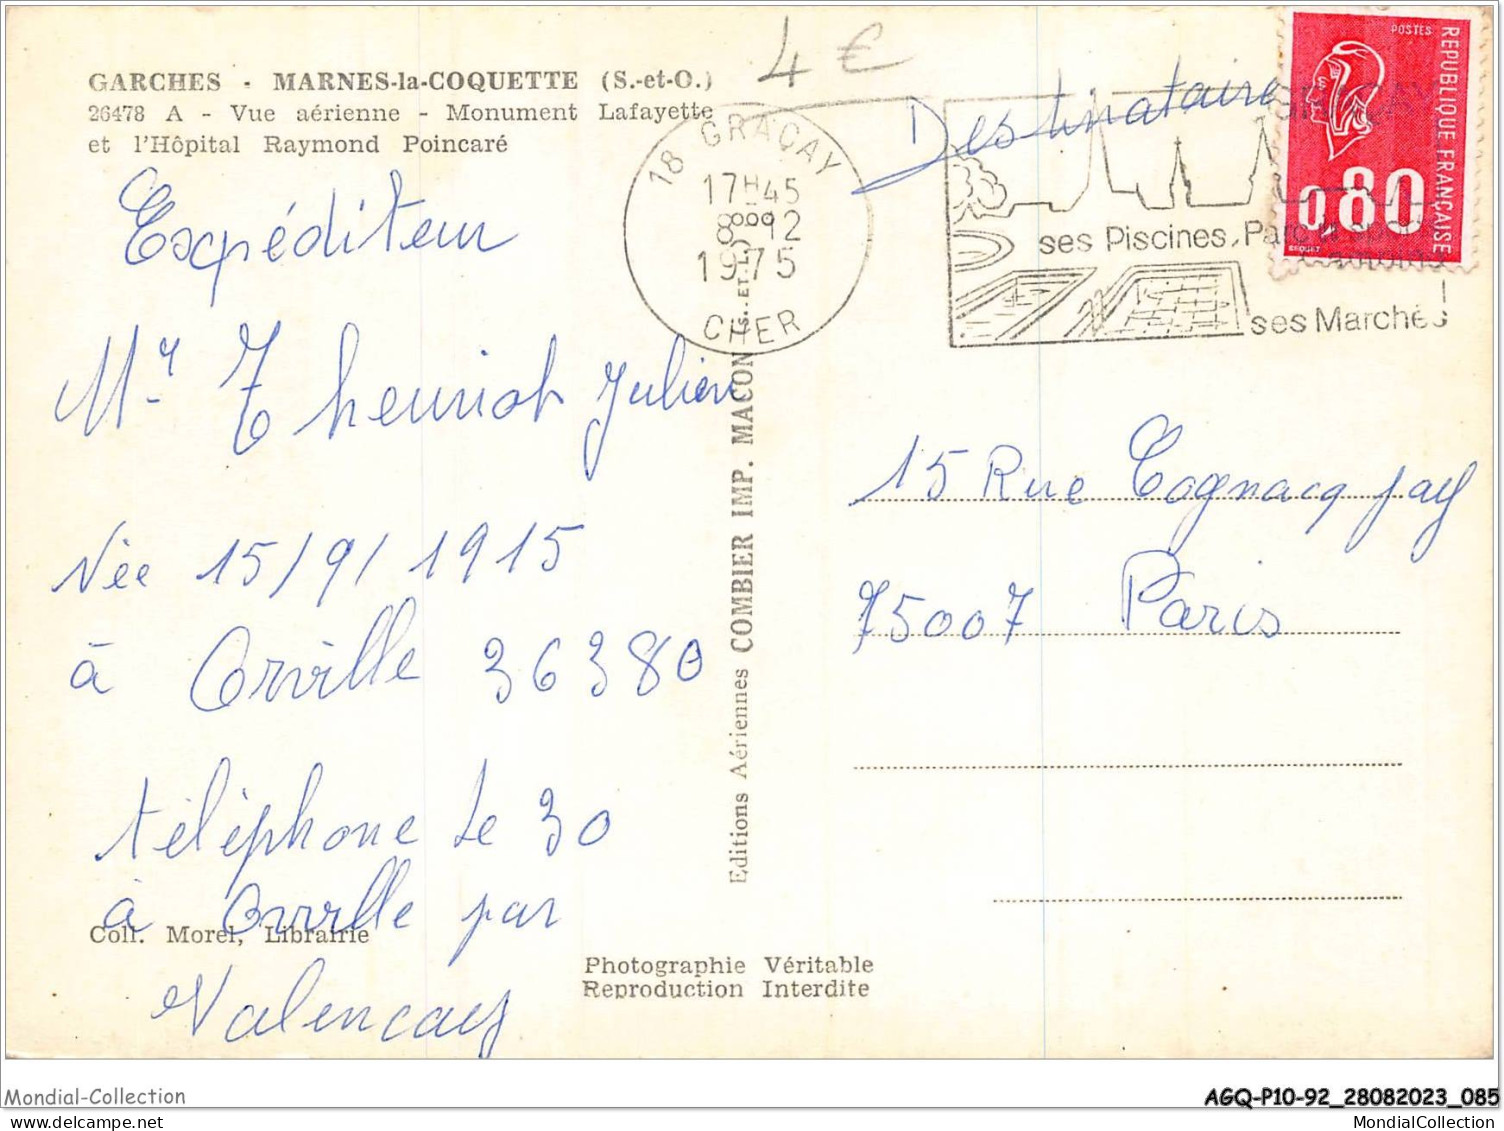 4 €
GARCHES - MARNES-la-COQUETTE (S.-et-O.)
26478 A - Vue aérienne - Monument Lafayette
et l'Hôpital Raymond Poincaré
Expéditeur
Mr Theuriot Julien
Née 15/9/1915
à Orville 36380
téléphone le 30
à Orville par
Valencay
Coll. Morel, Librairie
18 GRAÇAY
17H45
8 12
1975
CHER
Editions Aériennes COMBIER IMP. MACON S.-ET-L.
Photographie Véritable
Reproduction Interdite
Destinataire
ses Piscines, Parc
ses Marchés
POSTES
REPUBLIQUE FRANÇAISE
0,80
BEQUET
15 Rue Cognacq Jay
75007 Paris
Mondial-Collection
AGQ-P10-92_28082023_085
MondialCollection